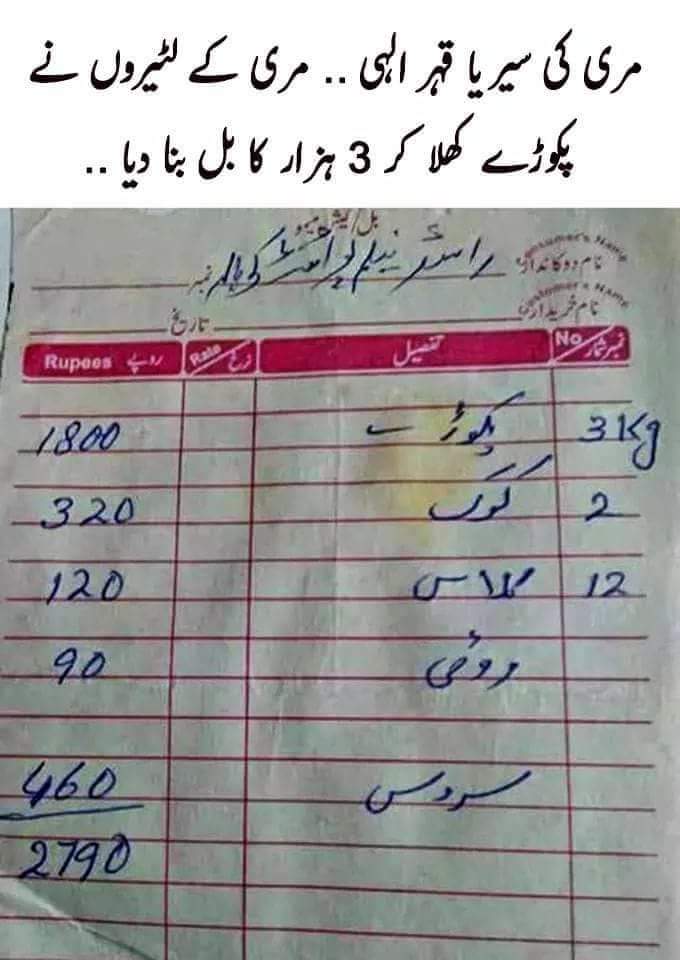 مری کی سیر یا قہر الہی .. مری کے لٹیروں نے
پکوڑے کھلا کر 3 ہزار کا بل بنا دیا ..
بل/کیش میمو
Customer's Name نام دوکاندار نمبر
Customer's Name نام خریدار تاریخ
نمبر شمار No تفصیل نرخ Rate روپے Rupees
3 Kg پکوڑے 1800
2 کوک 320
12 گلاس 120
روٹی 90
سروس 460
2790